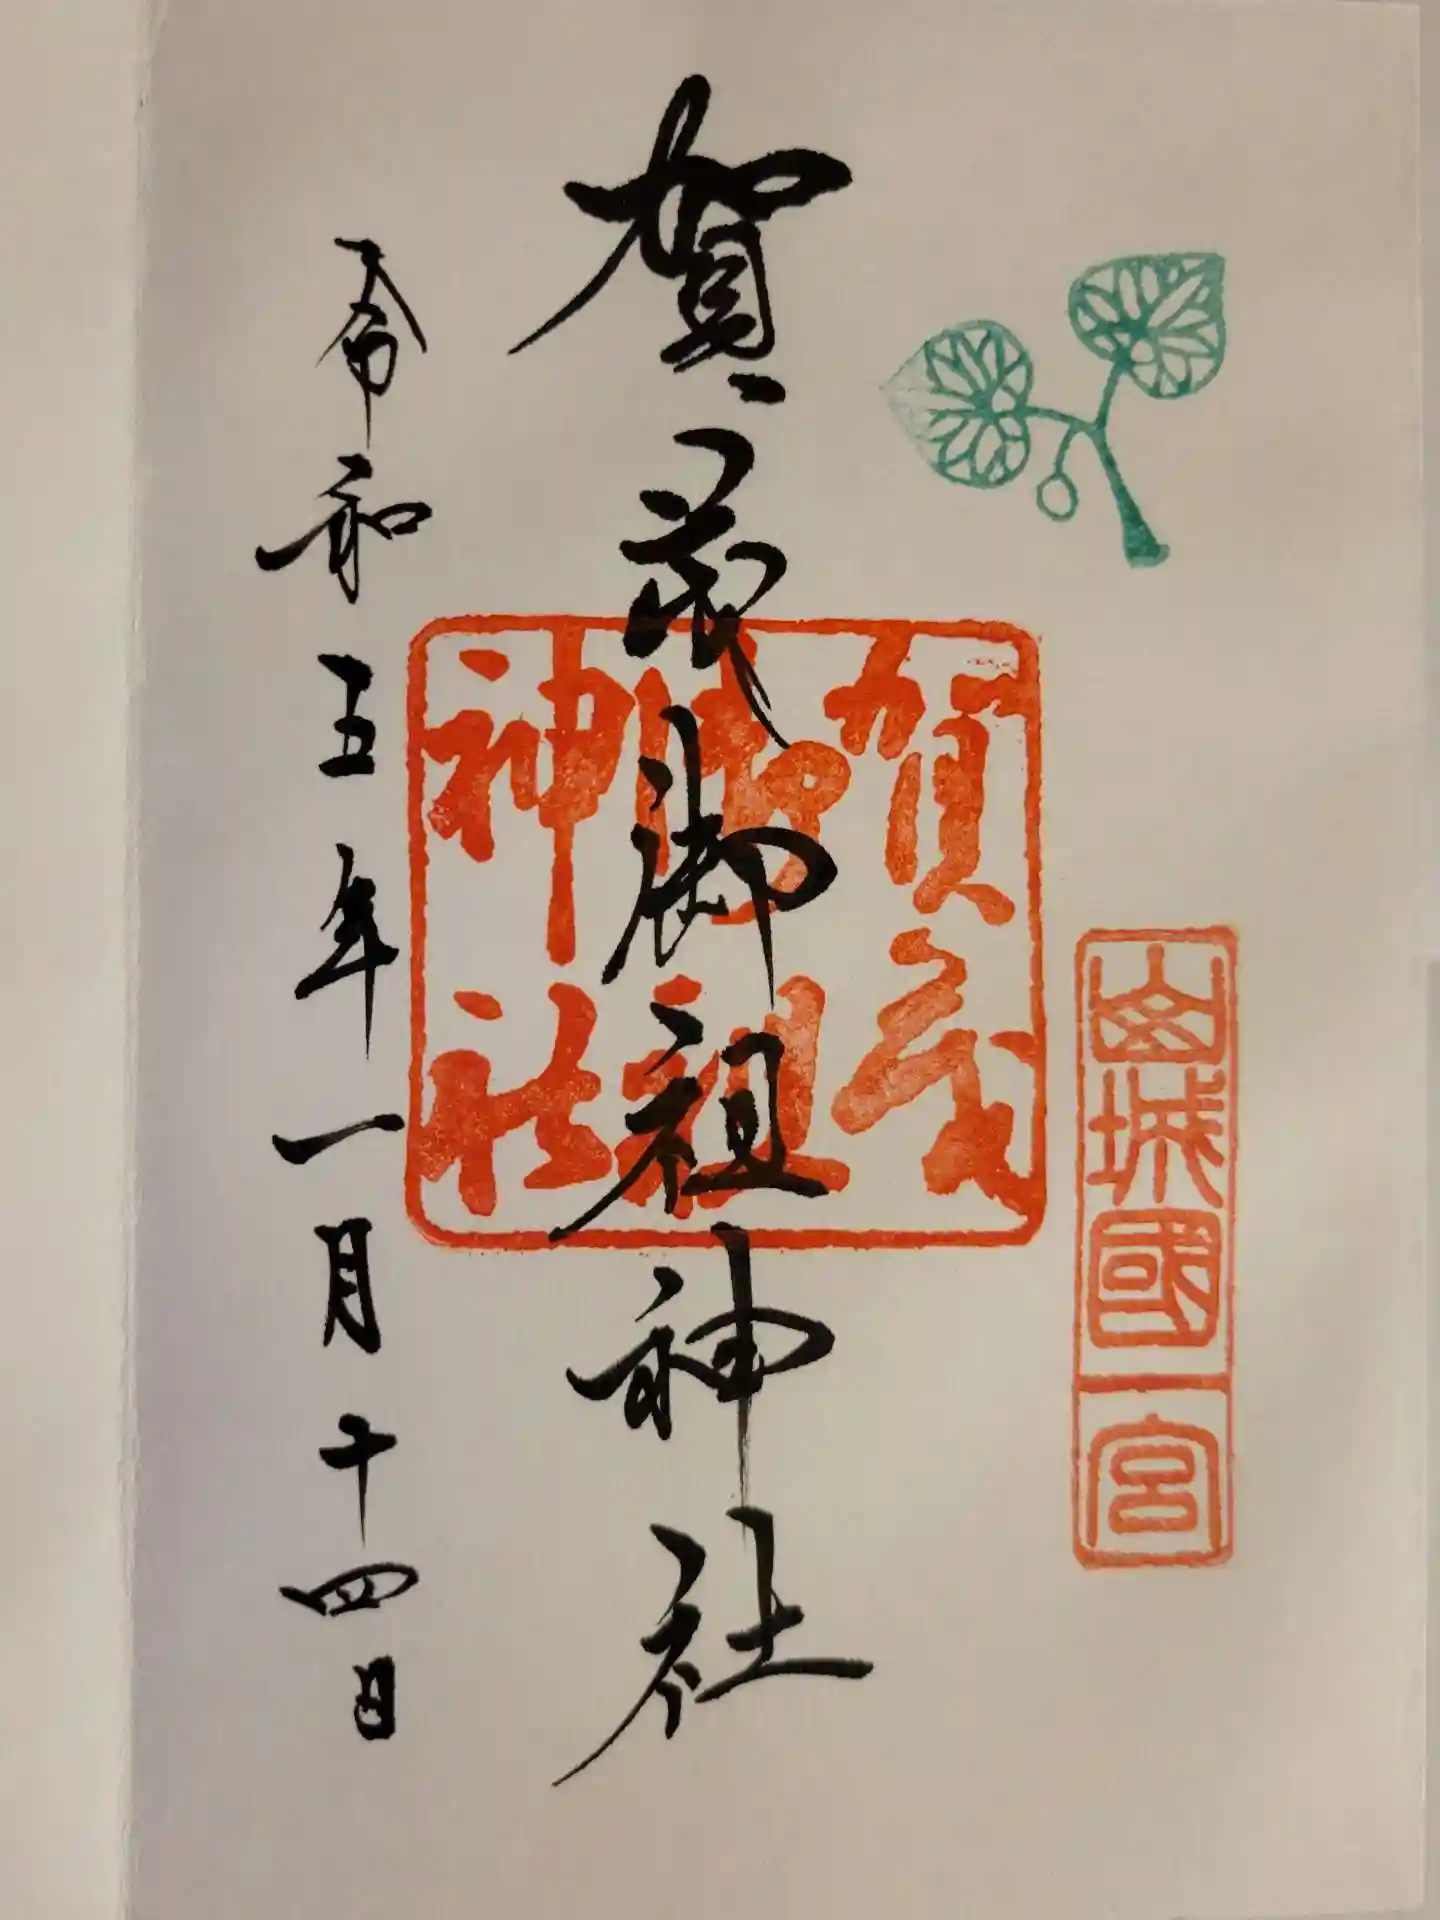 山城國
一宮
賀茂御祖神社
賀茂
御祖
神社
令和五年一月十四日